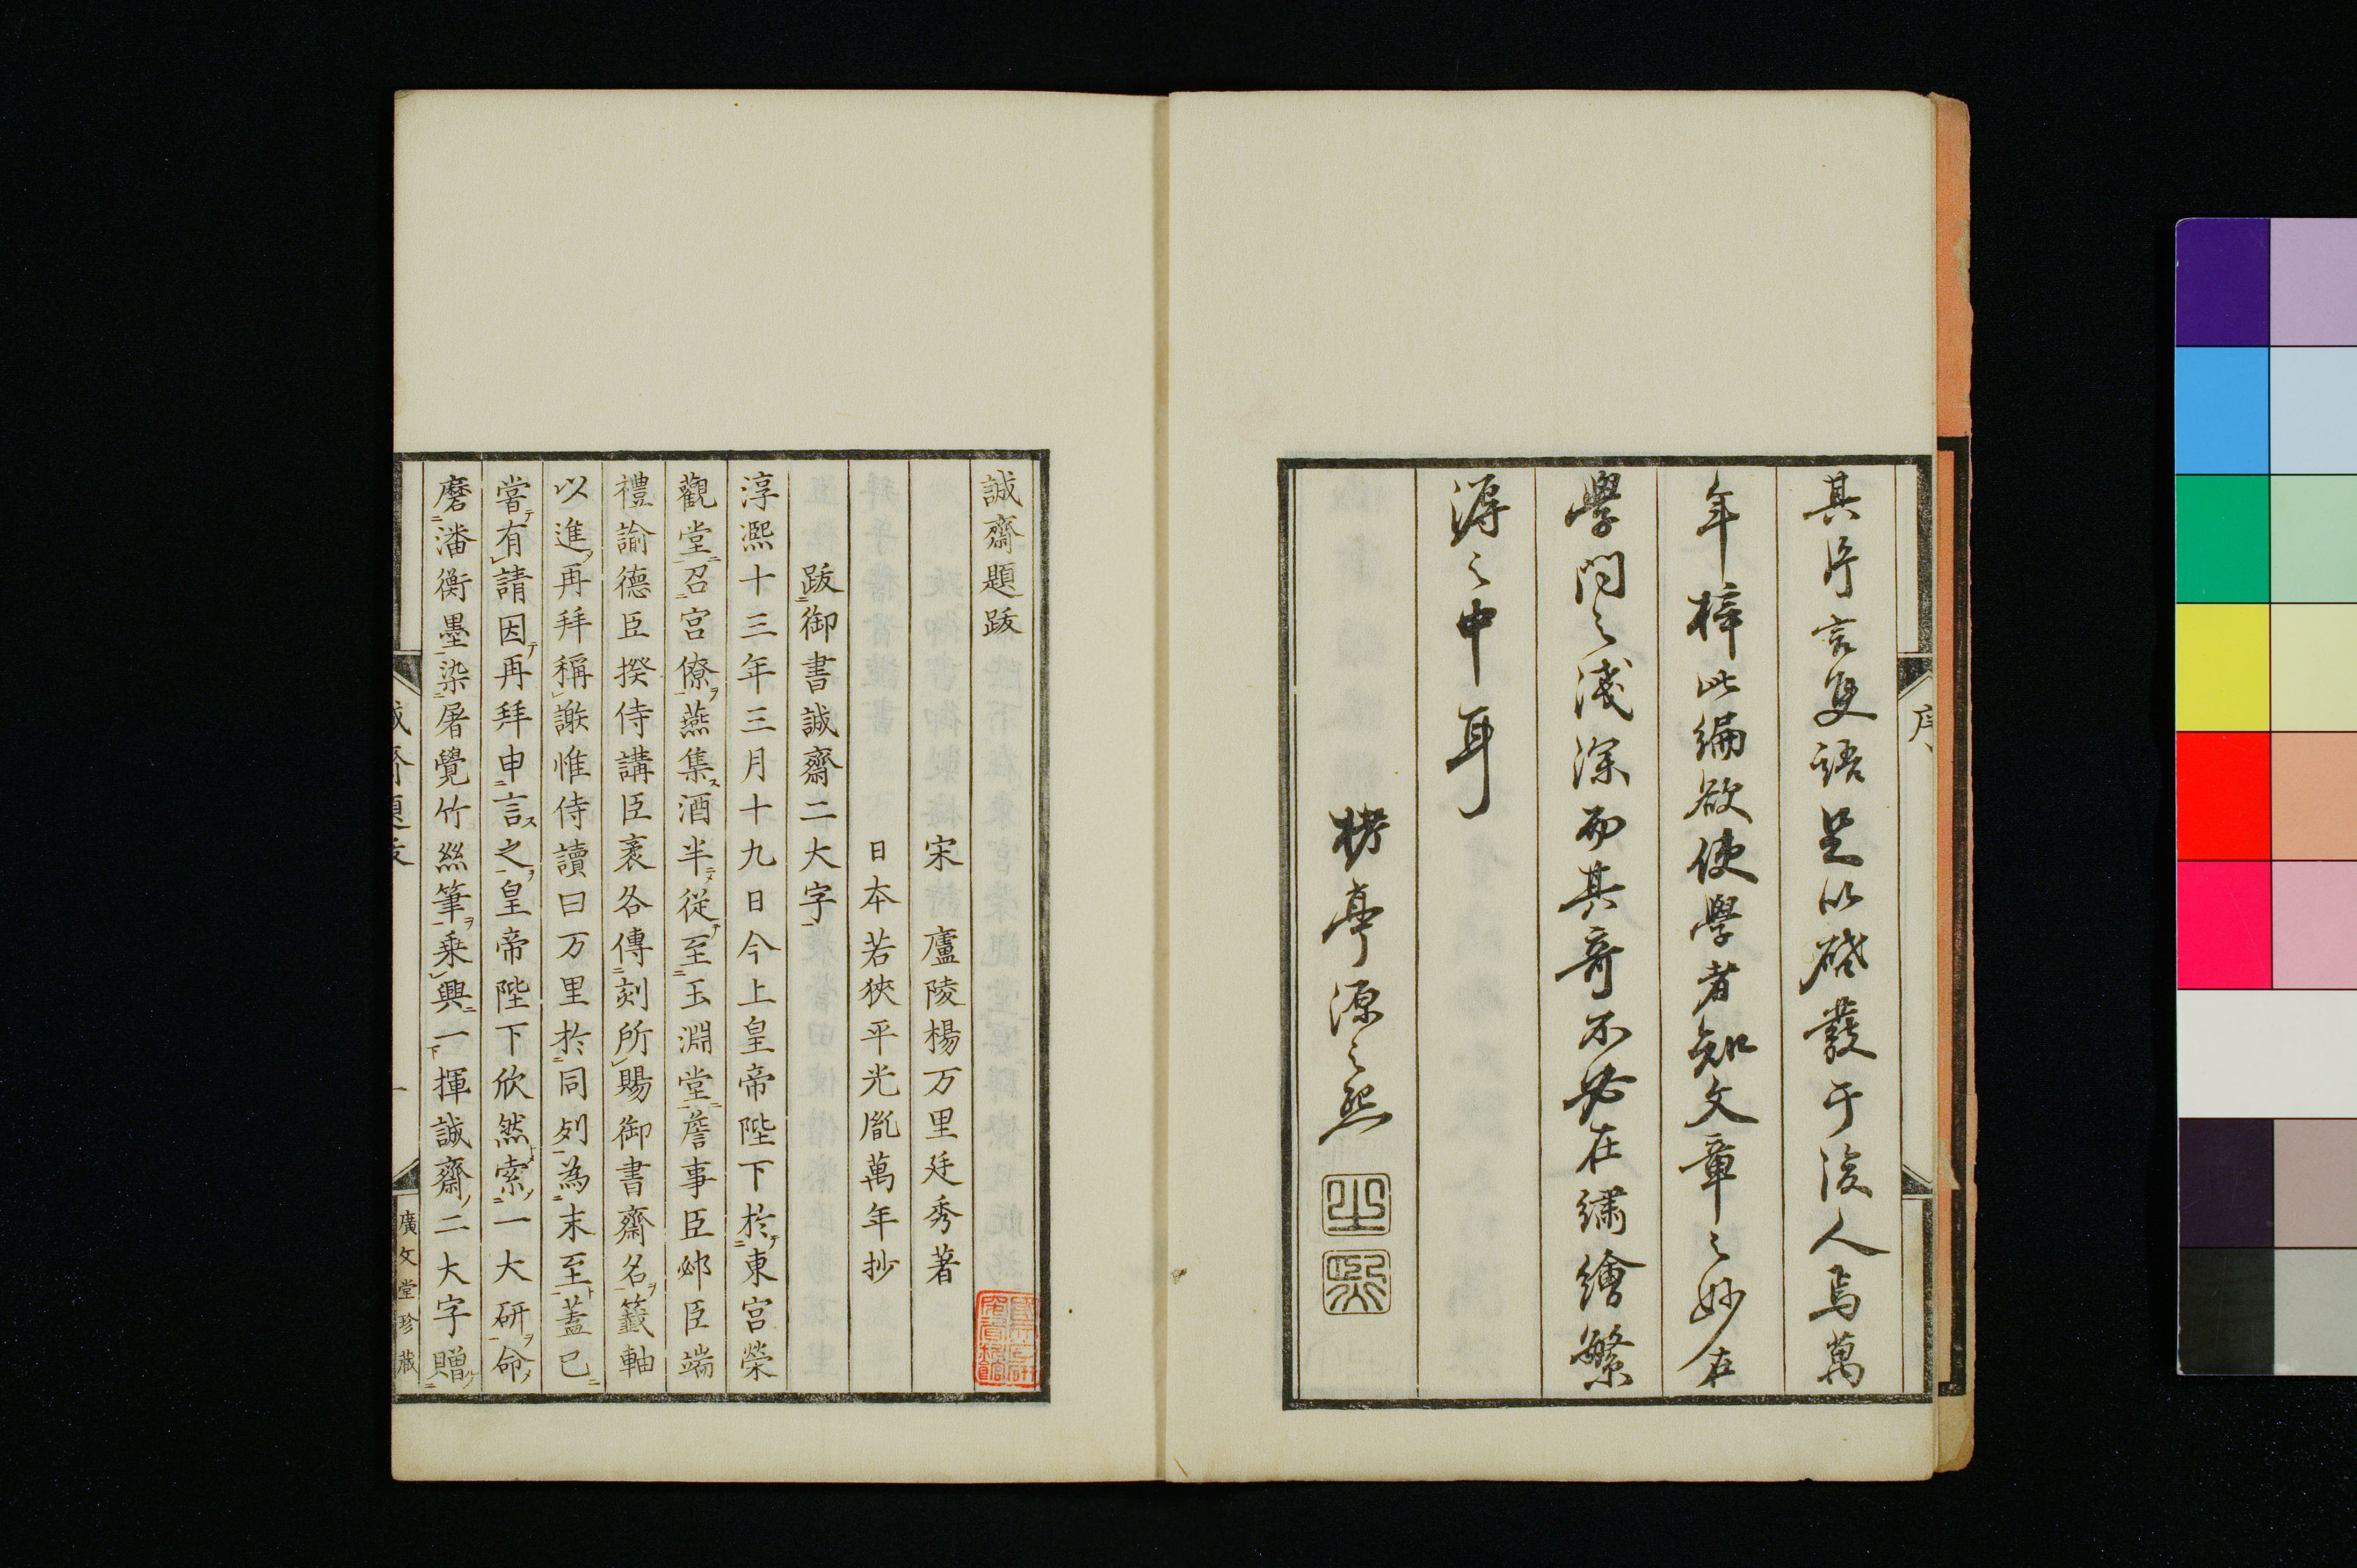 其片言隻語足以啓發于後人焉萬
年梓此編欲使學者知文章之妙在
學問之淺深而其奇不必在繡繪繁
縟之中耳
栲亭源之熙
之熙
序
誠齋題跋
宋 廬陵楊万里廷秀著
日本若狹平光胤萬年抄
跋御書誠齋二大字
淳熙十三年三月十九日今上皇帝陛下於東宮榮
觀堂召宮僚燕集酒半從至玉淵堂詹事臣邲臣端
禮諭德臣揆侍講臣袤各傳刻所賜御書齋名籤軸
以進再拜稱謝惟侍讀曰万里於同列為末至蓋已
嘗有請因再拜申言之皇帝陛下欣然索一大研命
磨潘衡墨染屠覺竹絲筆乗興一揮誠齋二大字贈
誠齋題跋
一
廣文堂珍藏